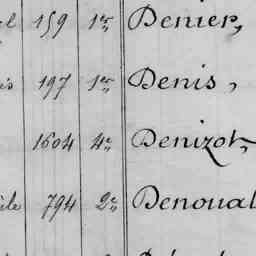 159 1er Denier,
197 1er Denis,
1604 4e Denizot,
794 2e Denoual